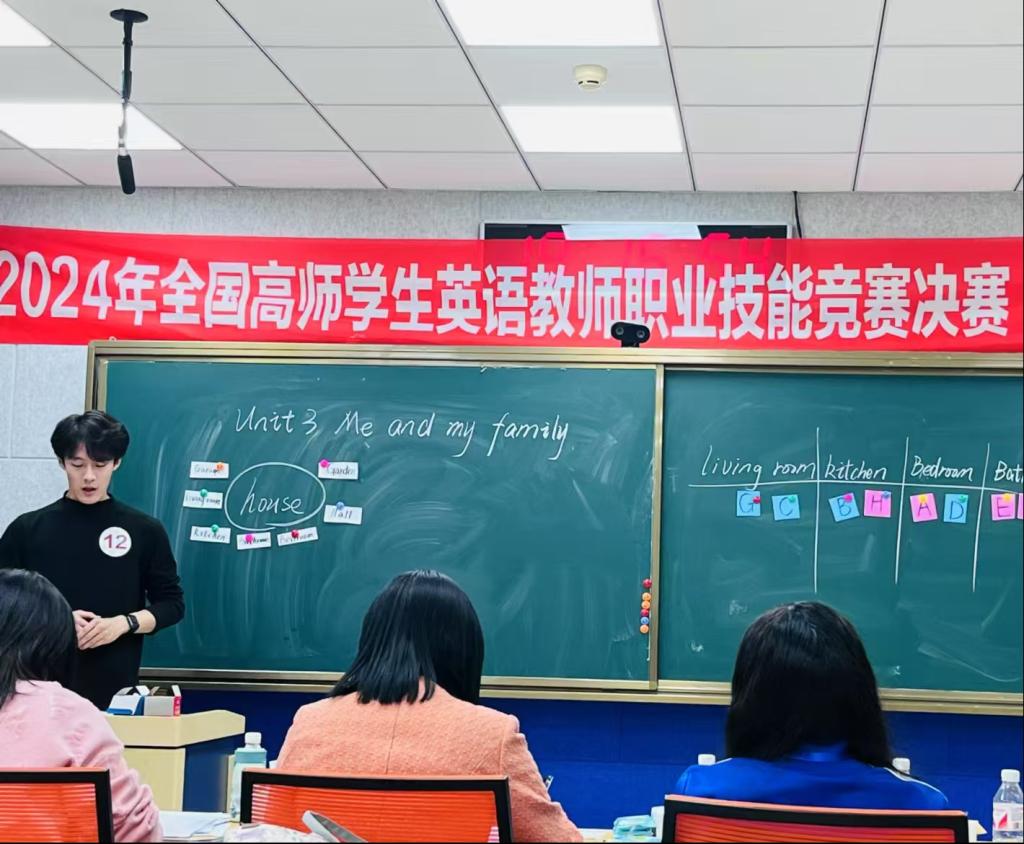 2024年全国高师学生英语教师职业技能竞赛决赛
Unit 3 Me and my family
Garden
living room
house
Hall
Kitchen
Bathroom
Bedroom
living room kitchen Bedroom Bat
G C B H A D E
12